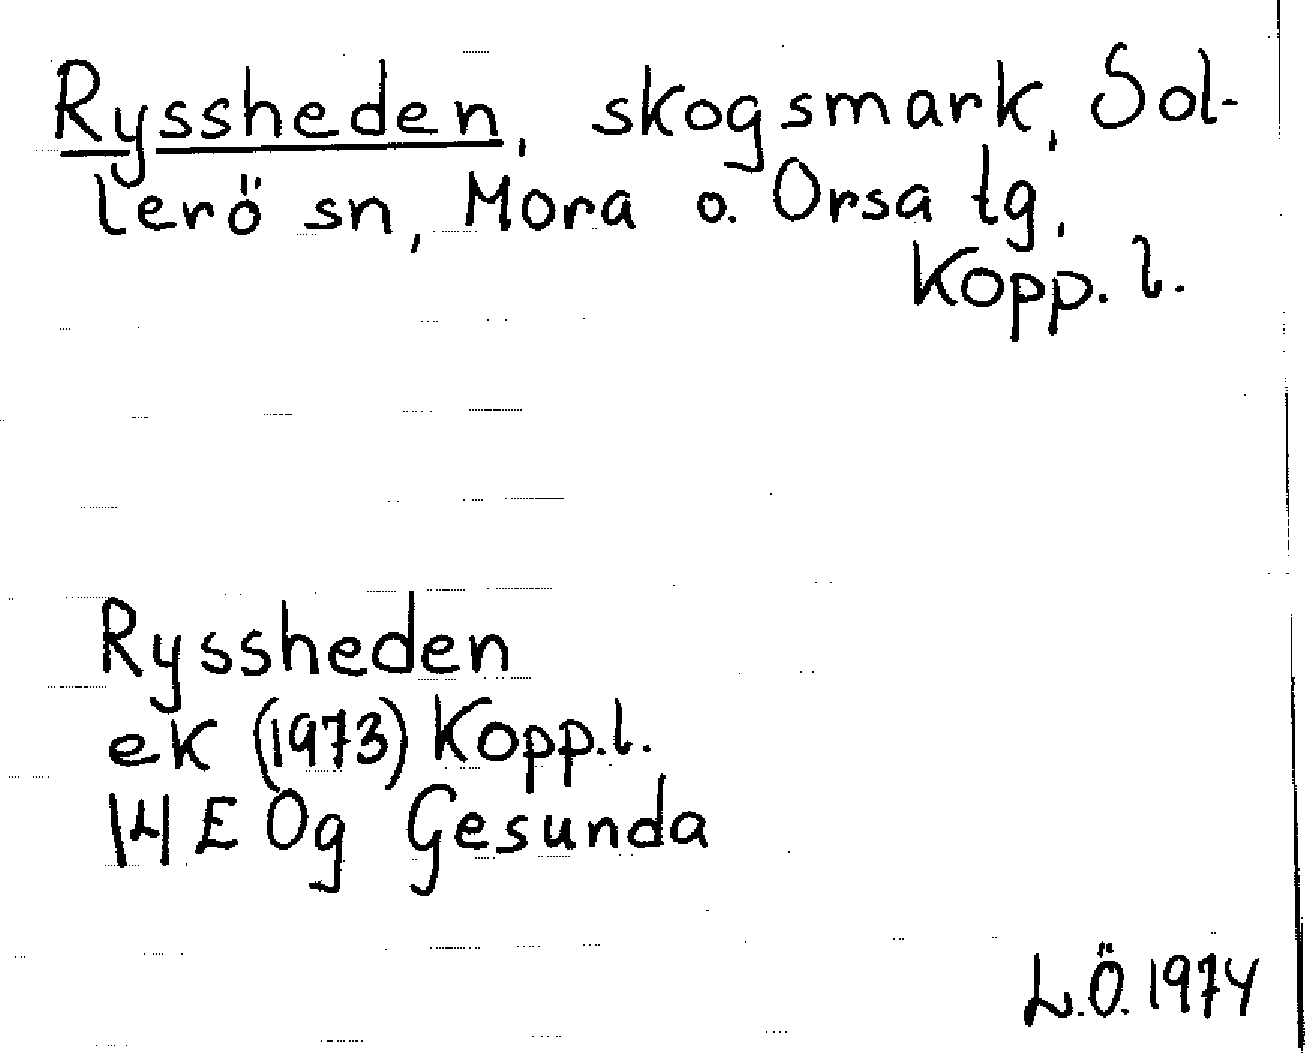 Ryssheden, skogsmark, Sol-
lerö sn, Mora o. Orsa tg,
Kopp. l.
Ryssheden
ek (1973) Kopp.l.
14 E Og Gesunda
L.Ö. 1974